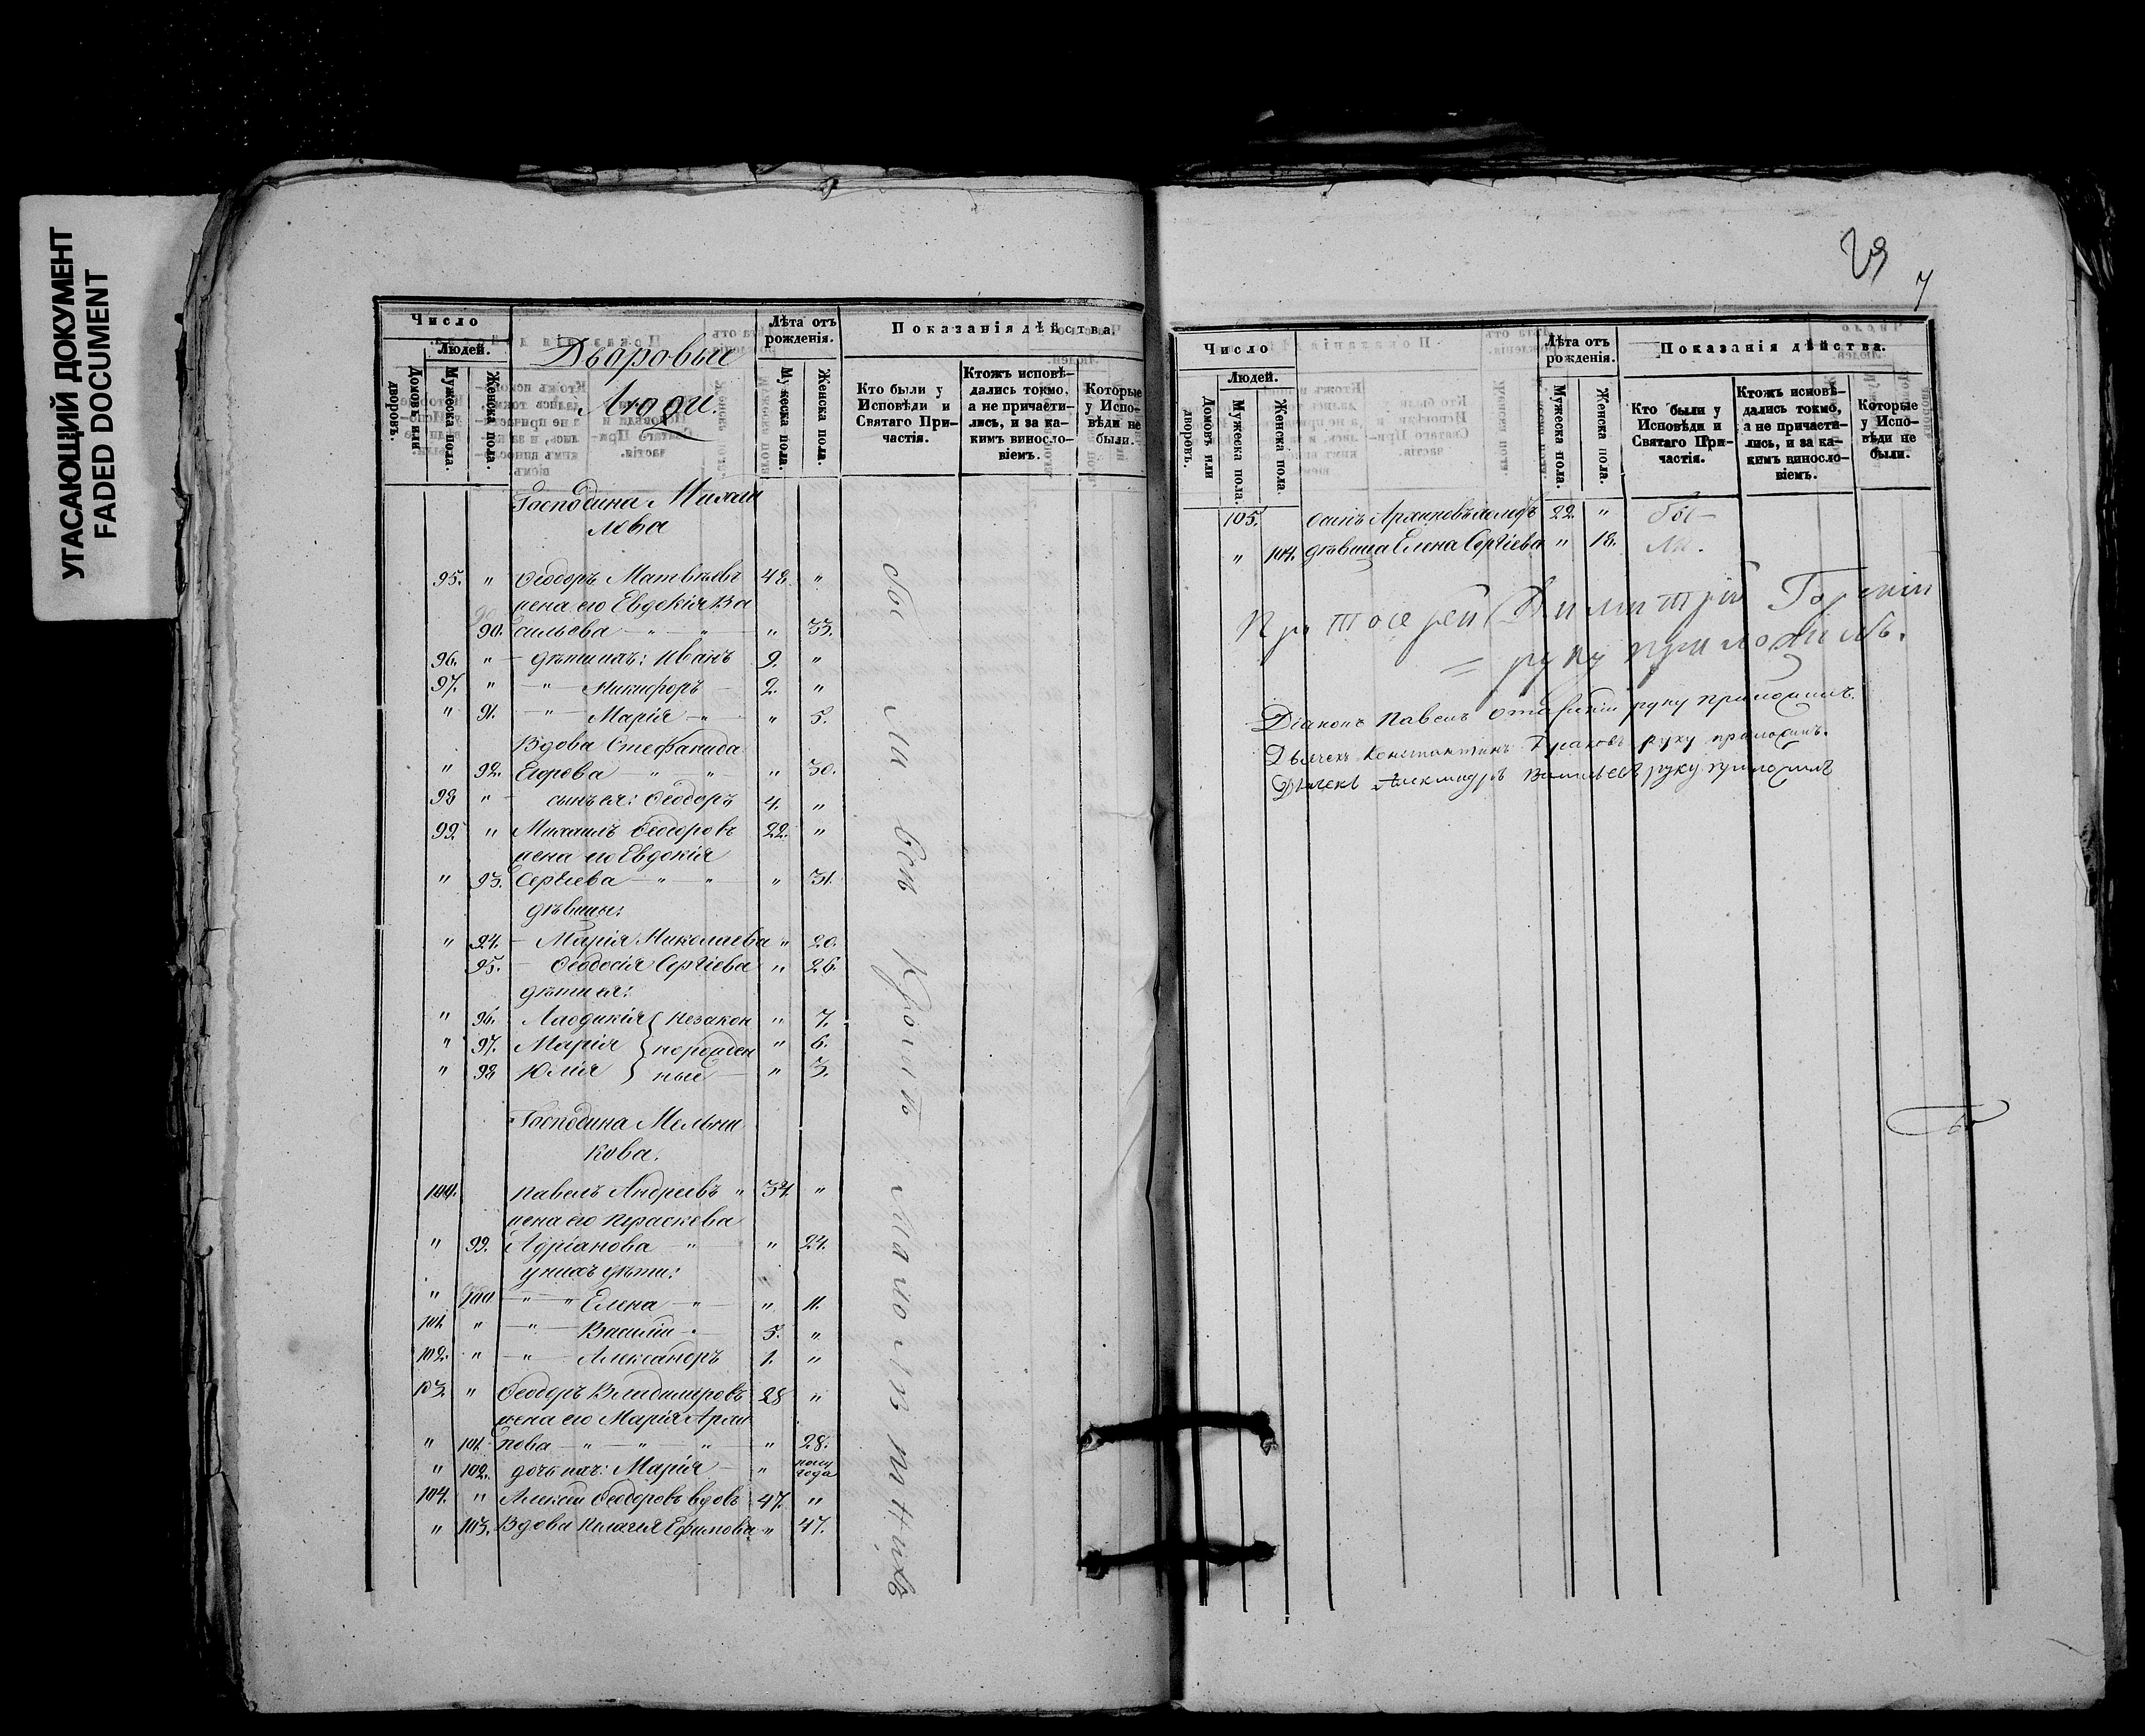 УГАСАЮЩИЙ ДОКУМЕНТ
FADED DOCUMENT
Число
Людей.
Домовъ или дворовъ.
Мужеска пола.
Женска пола.
Дворовыи
Люди.
Лѣта отъ рожденія.
Мужеска пола.
Женска пола.
Показанія дѣйства.
Кто были у Исповѣди и Святаго Причастія.
Ктожъ исповѣдались токмо, а не причастились, и за какимъ винословіемъ.
Которые у Исповѣди не были.
Господина Михаи
лова
95. " Ѳеодоръ Матвѣевъ 42 "
жена его Евдокія Ва
90. сильева " " " 33.
96. " дѣти ихъ: Иванъ 9. "
97. " " Никифоръ 2. "
" 91. " Марія " " 5.
Вдова Стефанида
" 92. Егорова " " " 30.
98 " сынъ ея: Ѳеодоръ 4. "
99. " Михаилъ Ѳеодоровъ 22. "
жена его Евдокія
" 93. Сергіева " " " 31.
дѣвицы:
" 94. Марія Николаева " 20.
95. Ѳеодосія Сергіева " 26.
дѣти ея:
" 96. Лаодикія { незакон " 7.
" 97. Марія } норожден " 6.
" 98 Юлія } ныя " 3.
Господина Мельни
кова.
100. Павелъ Андреевъ " 34. "
жена его Праскева
" 99. Адріанова " " 24.
у нихъ дѣти:
" 100 " " Елена " " 11.
101. " " Василій 5. "
102. " " Александръ 1. "
103. " Ѳеодоръ Владимировъ 28 "
жена его Марія Архи
" 101. пова " " " " 28.
" 102. дочь ихъ: Марія " полу года
104. " Алексѣй Ѳеодоровъ вдовъ 47. "
" 103. Вдова Пелагія Ефимова " 47.
бы ли всѣ кромѣ малолѣтнихъ
29
7
Число
Людей.
Домовъ или дворовъ.
Мужеска пола.
Женска пола.
Лѣта отъ рожденія.
Мужеска пола.
Женска пола.
Показанія дѣйства.
Кто были у Исповѣди и Святаго Причастія.
Ктожъ исповѣдались токмо, а не причастились, и за какимъ винословіемъ.
Которые у Исповѣди не были.
105. Осипъ Архиповъ холостъ 22. " бы
" 104. дѣвица Елена Сергіева " 18. ли.
Протоіерей Димитрій
руку приложилъ.
Діаконъ Павелъ руку приложилъ.
Дьячекъ Константинъ руку приложилъ.
Дьячекъ Александръ Васильевъ руку приложилъ